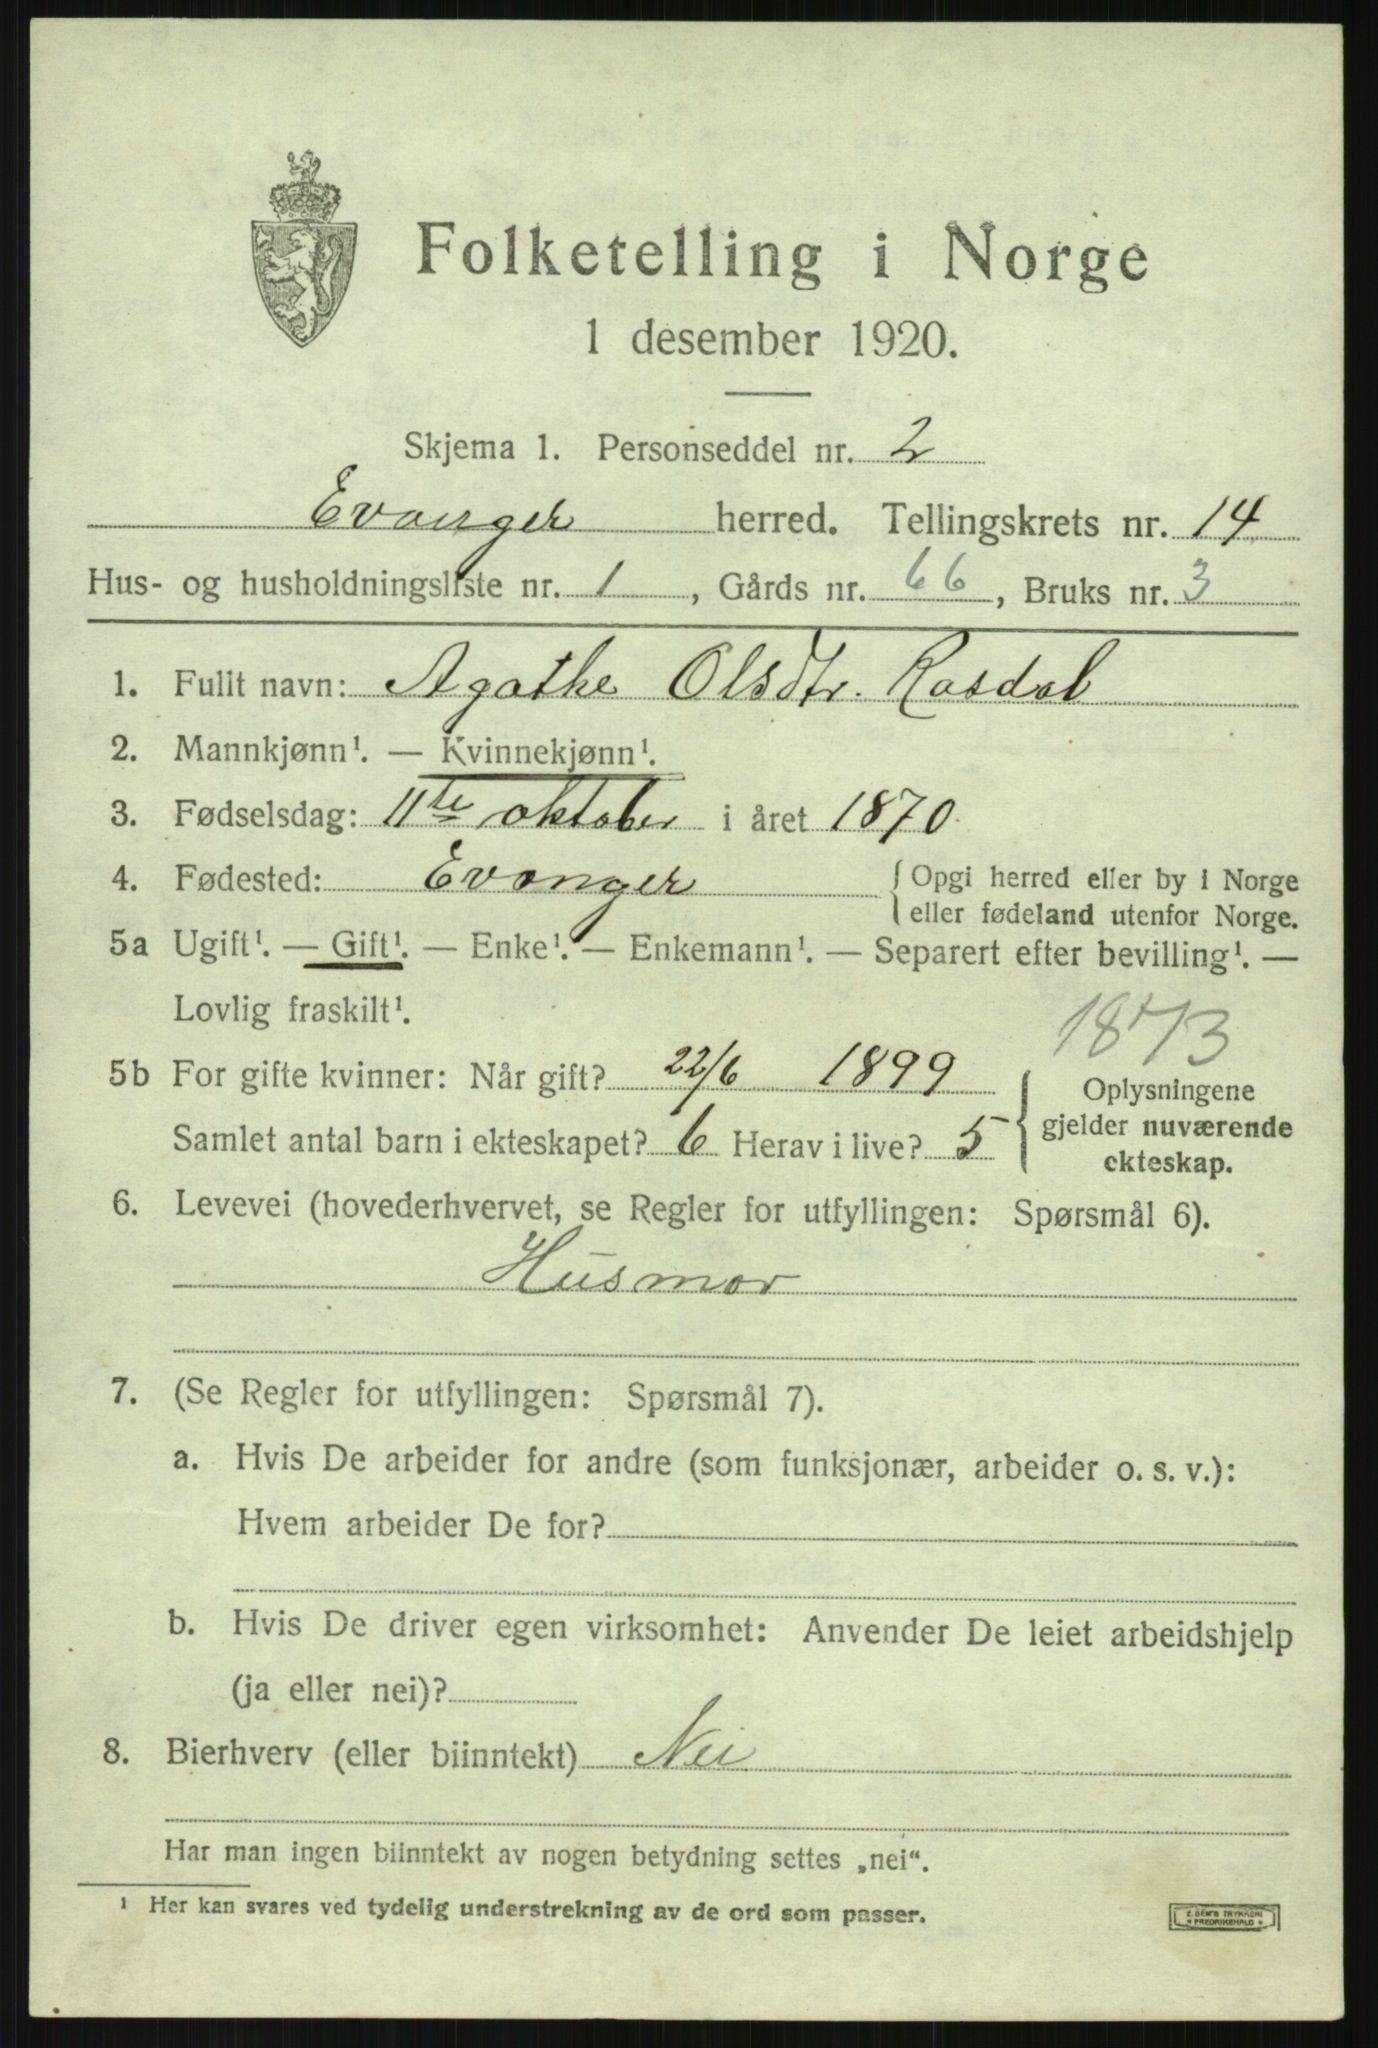 Folketelling i Norge
1 desember 1920.
Skjema 1. Personseddel nr. 2
Evanger herred. Tellingskrets nr. 14
Hus- og husholdningsliste nr. 1, Gårds nr. 66, Bruks nr. 3
1. Fullt navn: Agathe Olsdtr. Rasdal
2. Mannkjønn¹. — Kvinnekjønn¹.
3. Fødselsdag: 11te oktober i året 1870
4. Fødested: Evanger { Opgi herred eller by i Norge
eller fødeland utenfor Norge.
5a Ugift¹. — Gift¹. — Enke¹. — Enkemann¹. — Separert efter bevilling¹. —
Lovlig fraskilt¹.
1873
5b For gifte kvinner: Når gift? 22/6 1899
Samlet antal barn i ekteskapet? 6 Herav i live? 5
{ Oplysningene
gjelder nuværende
ekteskap.
6. Levevei (hovederhvervet, se Regler for utfyllingen: Spørsmål 6).
Husmor
7. (Se Regler for utfyllingen: Spørsmål 7).
a. Hvis De arbeider for andre (som funksjonær, arbeider o. s. v.):
Hvem arbeider De for?
b. Hvis De driver egen virksomhet: Anvender De leiet arbeidshjelp
(ja eller nei)?
8. Bierhverv (eller biinntekt) Nei
Har man ingen biinntekt av nogen betydning settes „nei“.
¹ Her kan svares ved tydelig understrekning av de ord som passer.
FREDRIKSHALD